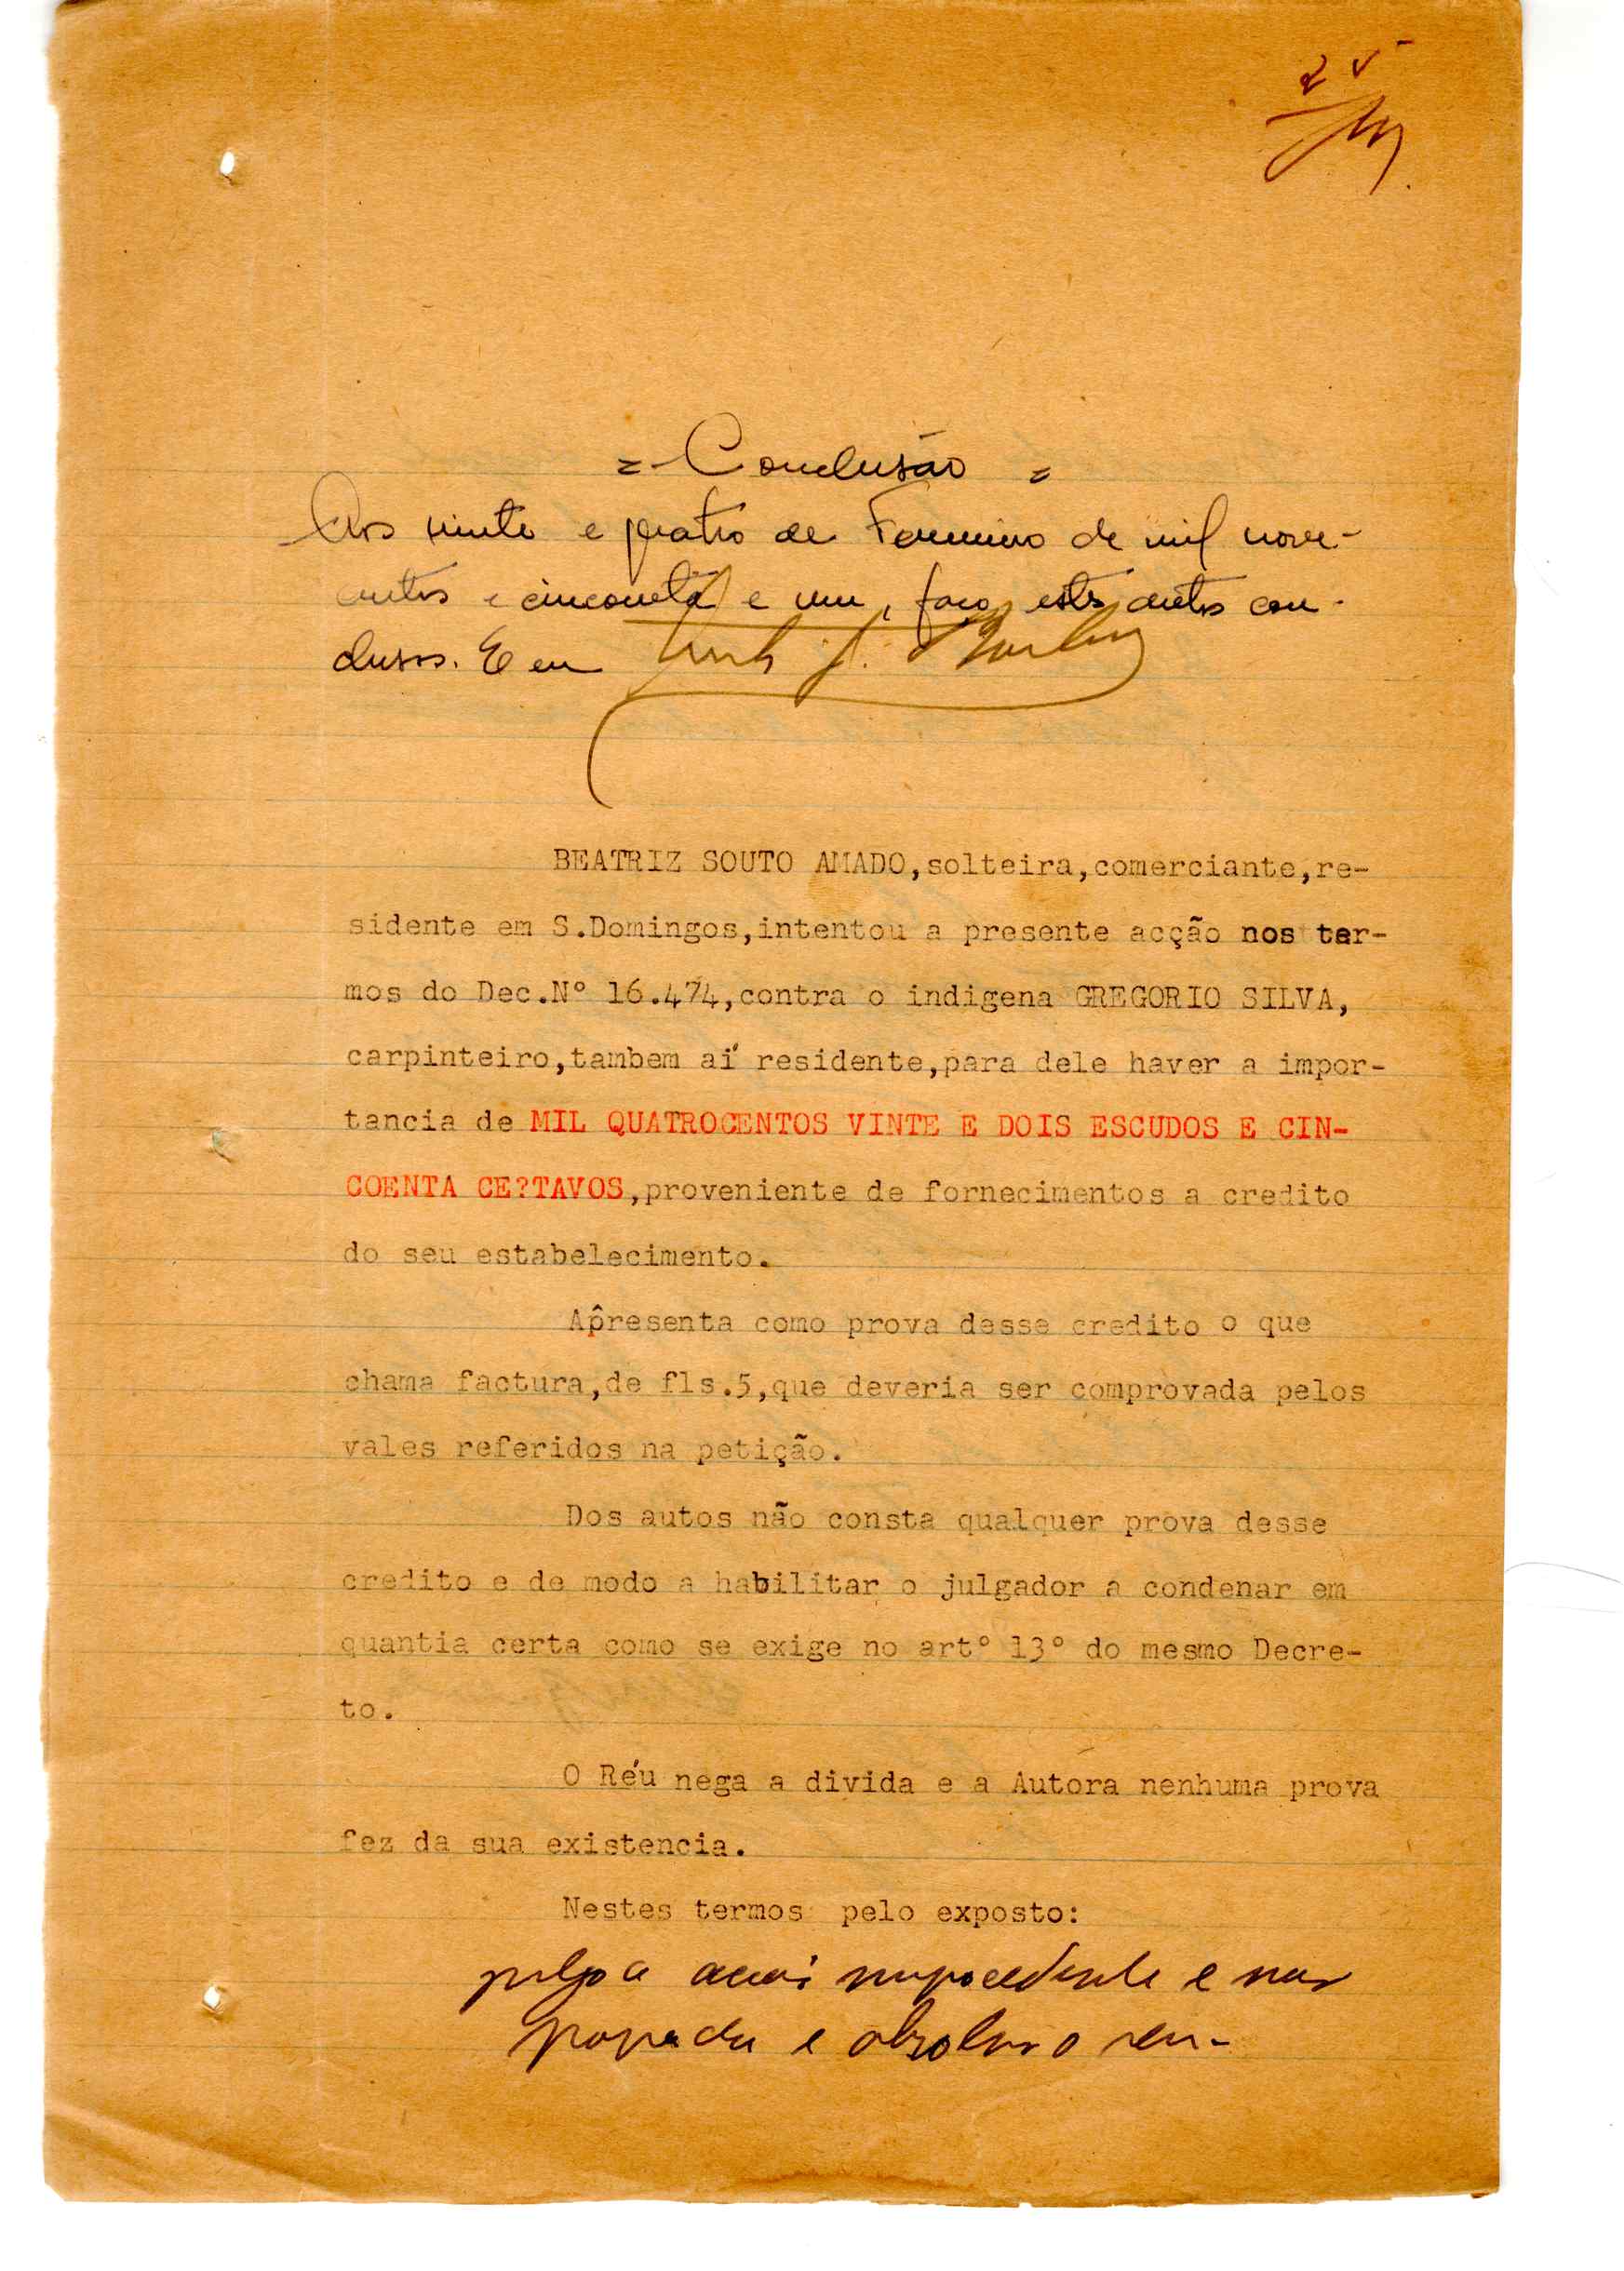 25
= Conclusão =
Aos vinte e quatro de Fevereiro de mil nove-
centos e cincoenta e um, faço estes autos con-
clusos. E eu
BEATRIZ SOUTO AMADO,solteira,comerciante,re-
sidente em S.Domingos,intentou a presente acção nos ter-
mos do Dec.Nº 16.474,contra o indigena GREGORIO SILVA,
carpinteiro,tambem aí residente,para dele haver a impor-
tancia de MIL QUATROCENTOS VINTE E DOIS ESCUDOS E CIN-
COENTA CE?TAVOS,proveniente de fornecimentos a credito
do seu estabelecimento.
Ap̂resenta como prova desse credito o que
chama factura,de fls.5,que deveria ser comprovada pelos
vales referidos na petição.
Dos autos não consta qualquer prova desse
credito e de modo a habilitar o julgador a condenar em
quantia certa como se exige no artº 13º do mesmo Decre-
to.
O Réu nega a divida e a Autora nenhuma prova
fez da sua existencia.
Nestes termos pelo exposto:
julgo a acção improcedente e não
provada e absolvo o reu-